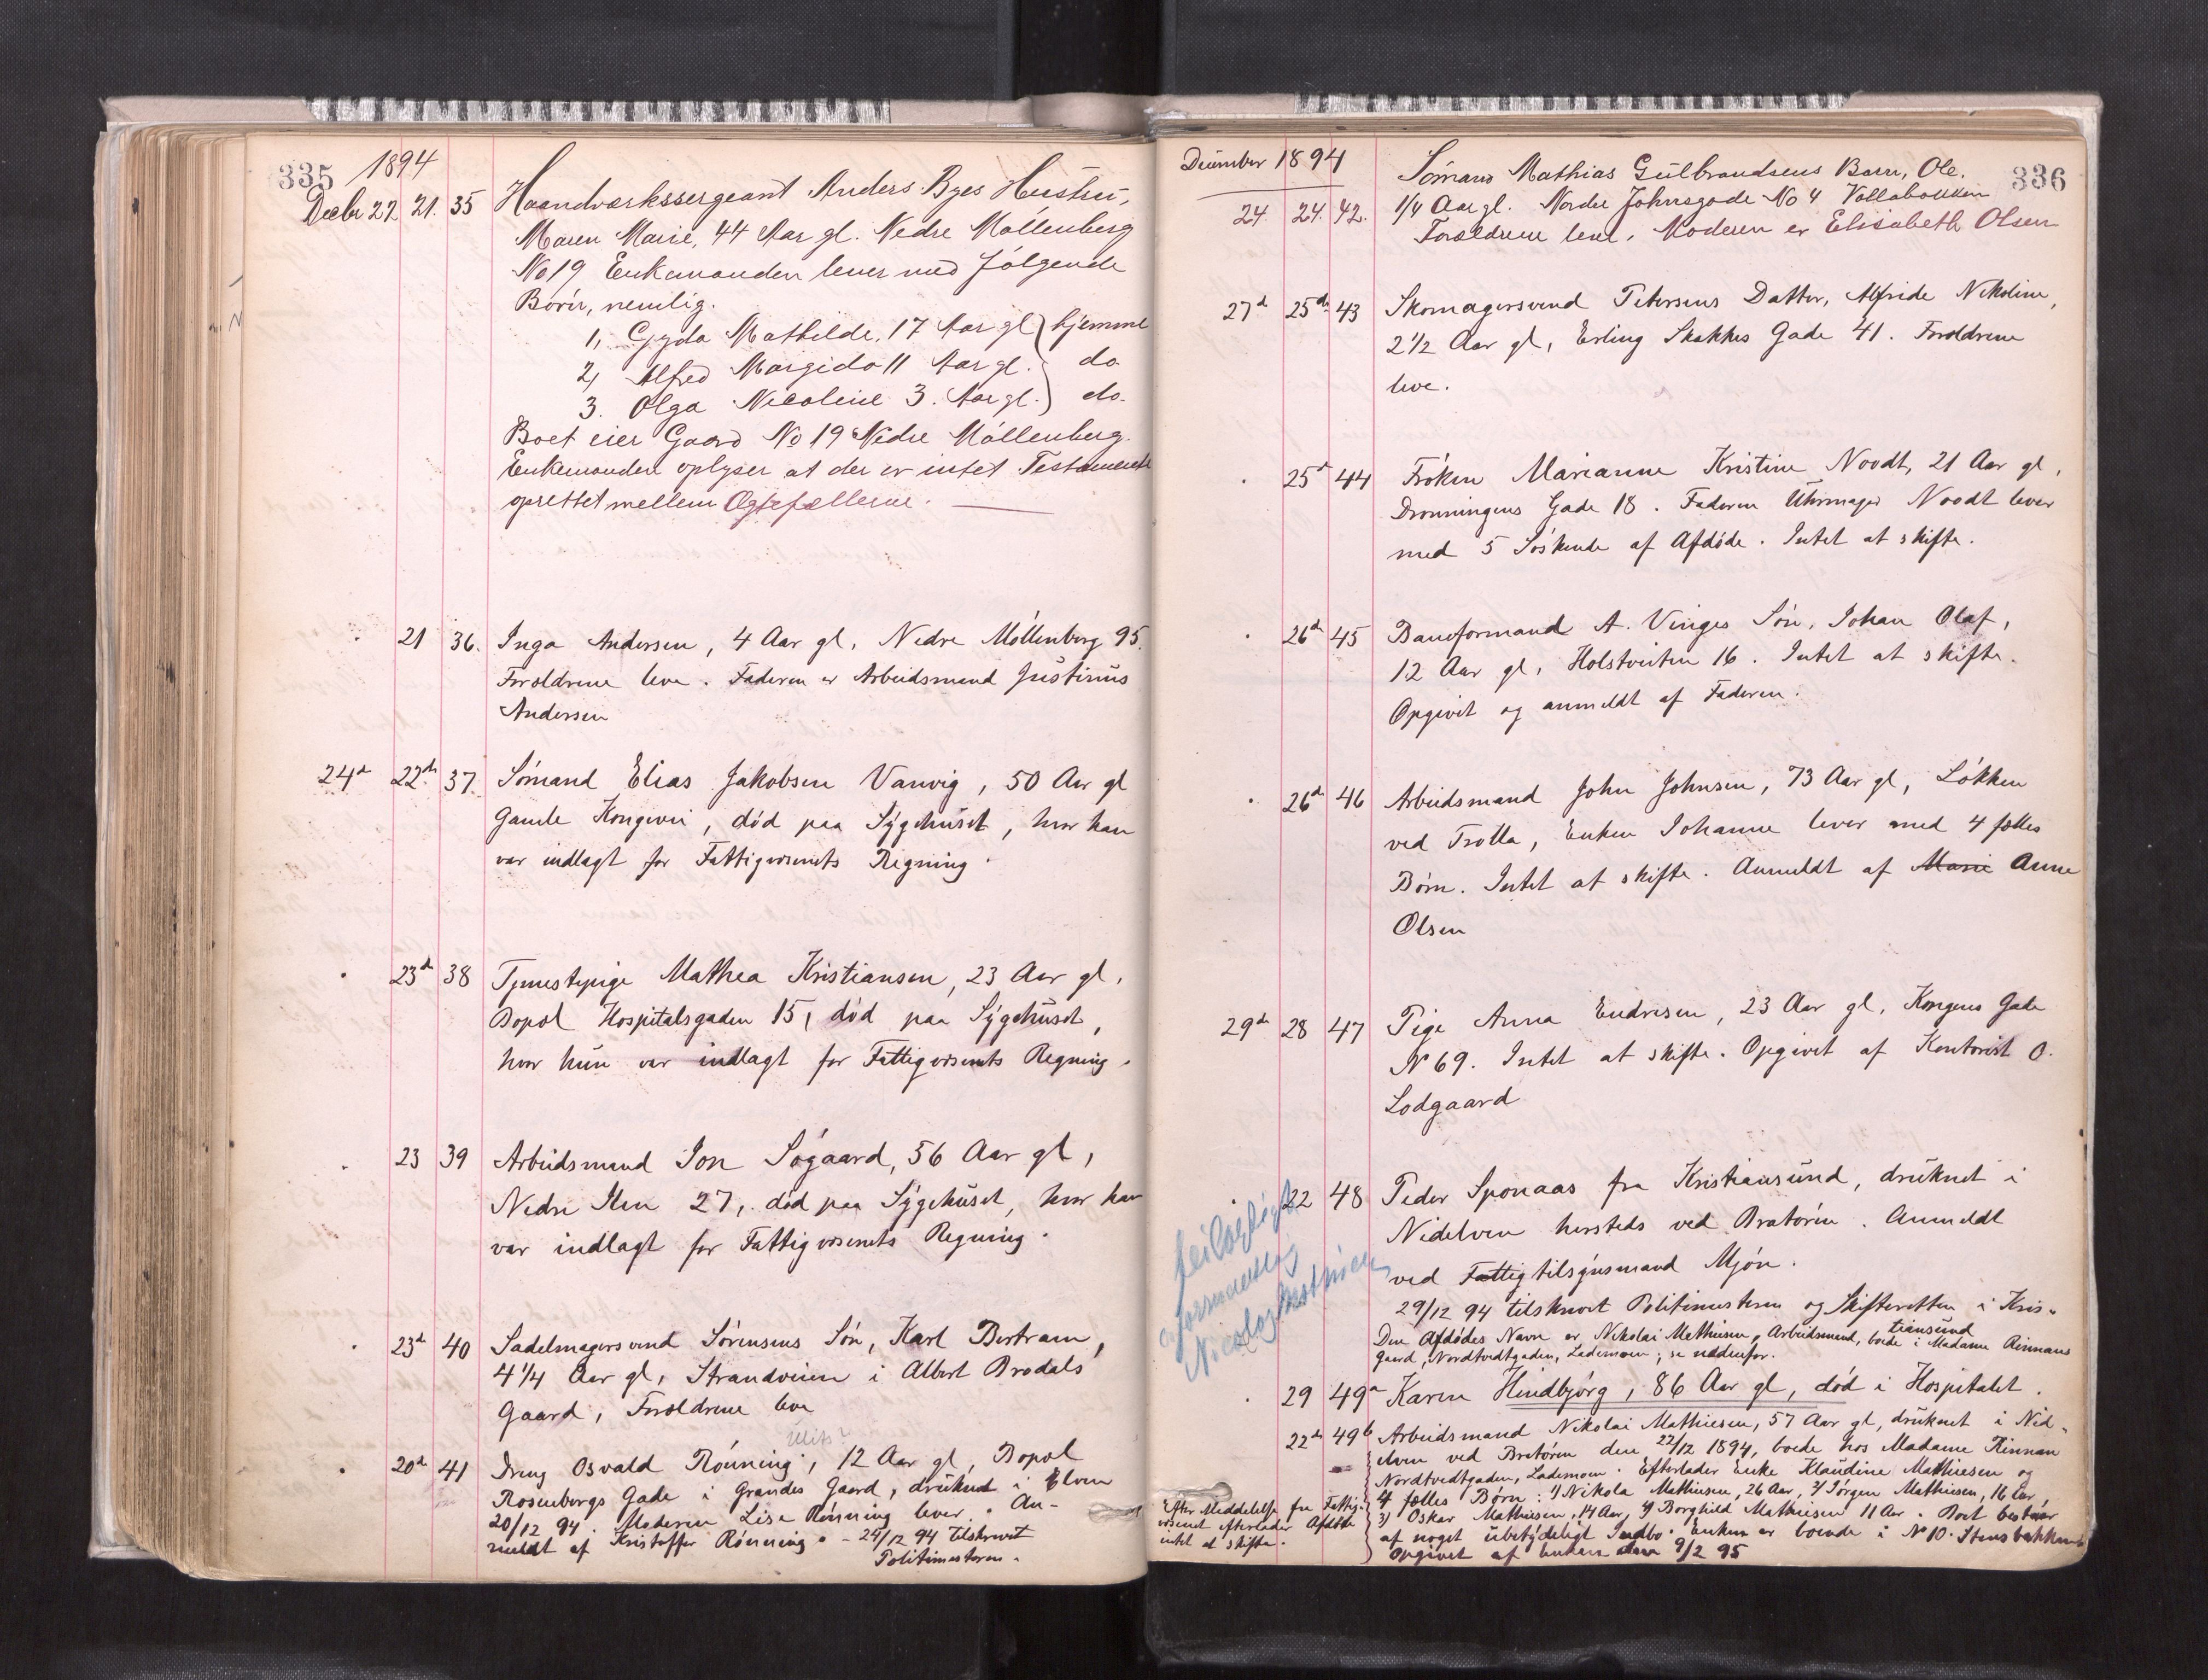 335 1894
Decbr 22 21. 35 Haandværkssergeant Anders Byes Hustru,
Maren Marie, 44 Aar gl. Nedre Möllenberg
No 19 Enkemanden lever med følgende
Børn, nemlig.
1, Gyda Mathilde, 17 Aar gl. hjemme
2, Alfred Margido 11 Aar gl. do
3. Olga Nicoline 3. Aar gl. do.
Boet eier Gaard No 19 Nedre Möllenberg.
Enkemanden oplyser at der er intet Testamente
oprettet mellem Ægtefællerne.
21 36. Inga Andersen, 4 Aar gl, Nedre Möllenberg 95.
Forældrene leve. Faderen er Arbeidsmand Justinus
Andersen
24d 22d 37. Sömand Elias Jakobsen Vanvig, 50 Aar gl
Gamle Kongevei, död paa Sygehuset, hvor han
var indlagt for Fattigvæsenets Regning.
23d 38 Tjenestepige Mathea Kristiansen, 23 Aar gl,
Bopæl Hospitalsgaden 15, död paa Sygehuset,
hvor hun var indlagt for Fattigvæsenets Regning.
23 39 Arbeidsmand Jon Sögaard, 56 Aar gl,
Nedre Ilen 27, död paa Sygehuset, hvor han
var indlagt for Fattigvæsenets Regning.
23d 40 Sadelmagersvend Sörensens Sön, Karl Bertram,
4 1/4 Aar gl, Strandveien i Albert Brodals
Gaard, Forældrene leve
20d 41 Dreng Osvald Rönning, 12 Aar gl, Bopæl
Rosenborgs Gade i Grandes Gaard, druknet i Elven
20/12 94. Moderen Lise Rönning lever. An-
meldt af Kristoffer Rönning. - 29/12 94 tilskrevet
Politimesteren.
December 1894 336
Sömand Mathias Gulbrandsens Barn, Ole.
24. 24. 42. 1/4 Aar gl. Nordre Johnsgade No 4 Vollabakken
Forældrene leve. Moderen er Elisabeth Olsen
27d 25d 43 Skomagersvend Petersens Datter, Alfride Nikoline,
2 1/2 Aar gl, Erling Skakkes Gade 41. Forældrene
leve.
25d 44 Fröken Marianne Kristine Noodt, 21 Aar gl,
Dronningens Gade 18. Faderen Uhrmager Noodt lever
med 5 Söskende af Afdöde. Intet at skifte.
26d 45 Baneformand A. Vinges Sön, Johan Olaf,
12 Aar gl, Holstveiten 16. Intet at skifte.
Opgivet og anmeldt af Faderen.
26d 46 Arbeidsmand John Johnsen, 73 Aar gl, Lökken
ved Trolla, Enken Johanne lever med 4 fælles
Börn. Intet at skifte. Anmeldt af Marie Anne
Olsen
29d 28 47 Pige Anna Endresen, 23 Aar gl, Kongens Gade
No 69. Intet at skifte. Opgivet af Kontorist O.
Lodgaard
22 48 Peder Sponaas fra Kristiansund, druknet i
Nidelven hersteds ved Bratören. Anmeldt
ved Fattigtilsynsmand Mjön.
29/12 94 tilskrevet Politimesteren og Skifteretten i Kris-
tiansund
Den Afdödes Navn er Nikolai Mathiesen, Arbeidsmand, boede i Madame Rinnans
Gaard, Nordtvedtgaden, Lademoen; se nedenfor.
Nicolay Mathisen
29 49a Karen Hindbjörg, 86 Aar gl, död i Hospitalet.
22d 49b Arbeidsmand Nikolai Mathiesen, 57 Aar gl, druknet i Nid-
elven ved Bratören den 22/12 1894, boede hos Madame Rinnan
Nordtvedtgaden, Lademoen. Efterlader Enke Klaudine Mathiesen og
4 fælles Börn: 1) Nikola Mathiesen, 26 Aar, 2) Jörgen Mathiesen, 16 Aar,
3) Oskar Mathiesen, 14 Aar, 4) Borghild Mathiesen 11 Aar. Boet bestaar
af noget ubetydeligt Indbo. Enken er boende i No 10. Stensbakken
Opgivet af Enken 9/2 95
Efter Meddelelse fra Fattig-
væsenet efterlader Afdöde
intet at skifte.